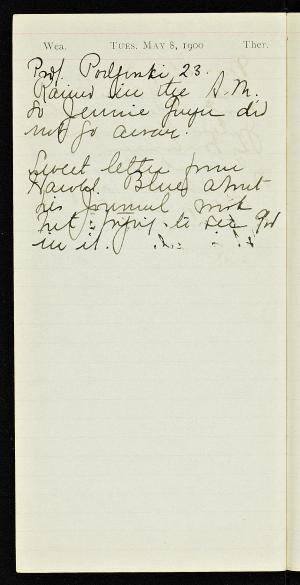 Wea. TUES. MAY 8, 1900 Ther.
Prof. 23.
Rained in the A.M.
So Jennie did
not go away.
Sweet letter from
Harold. Blue about
his Journal work
but trying to see God
in it.